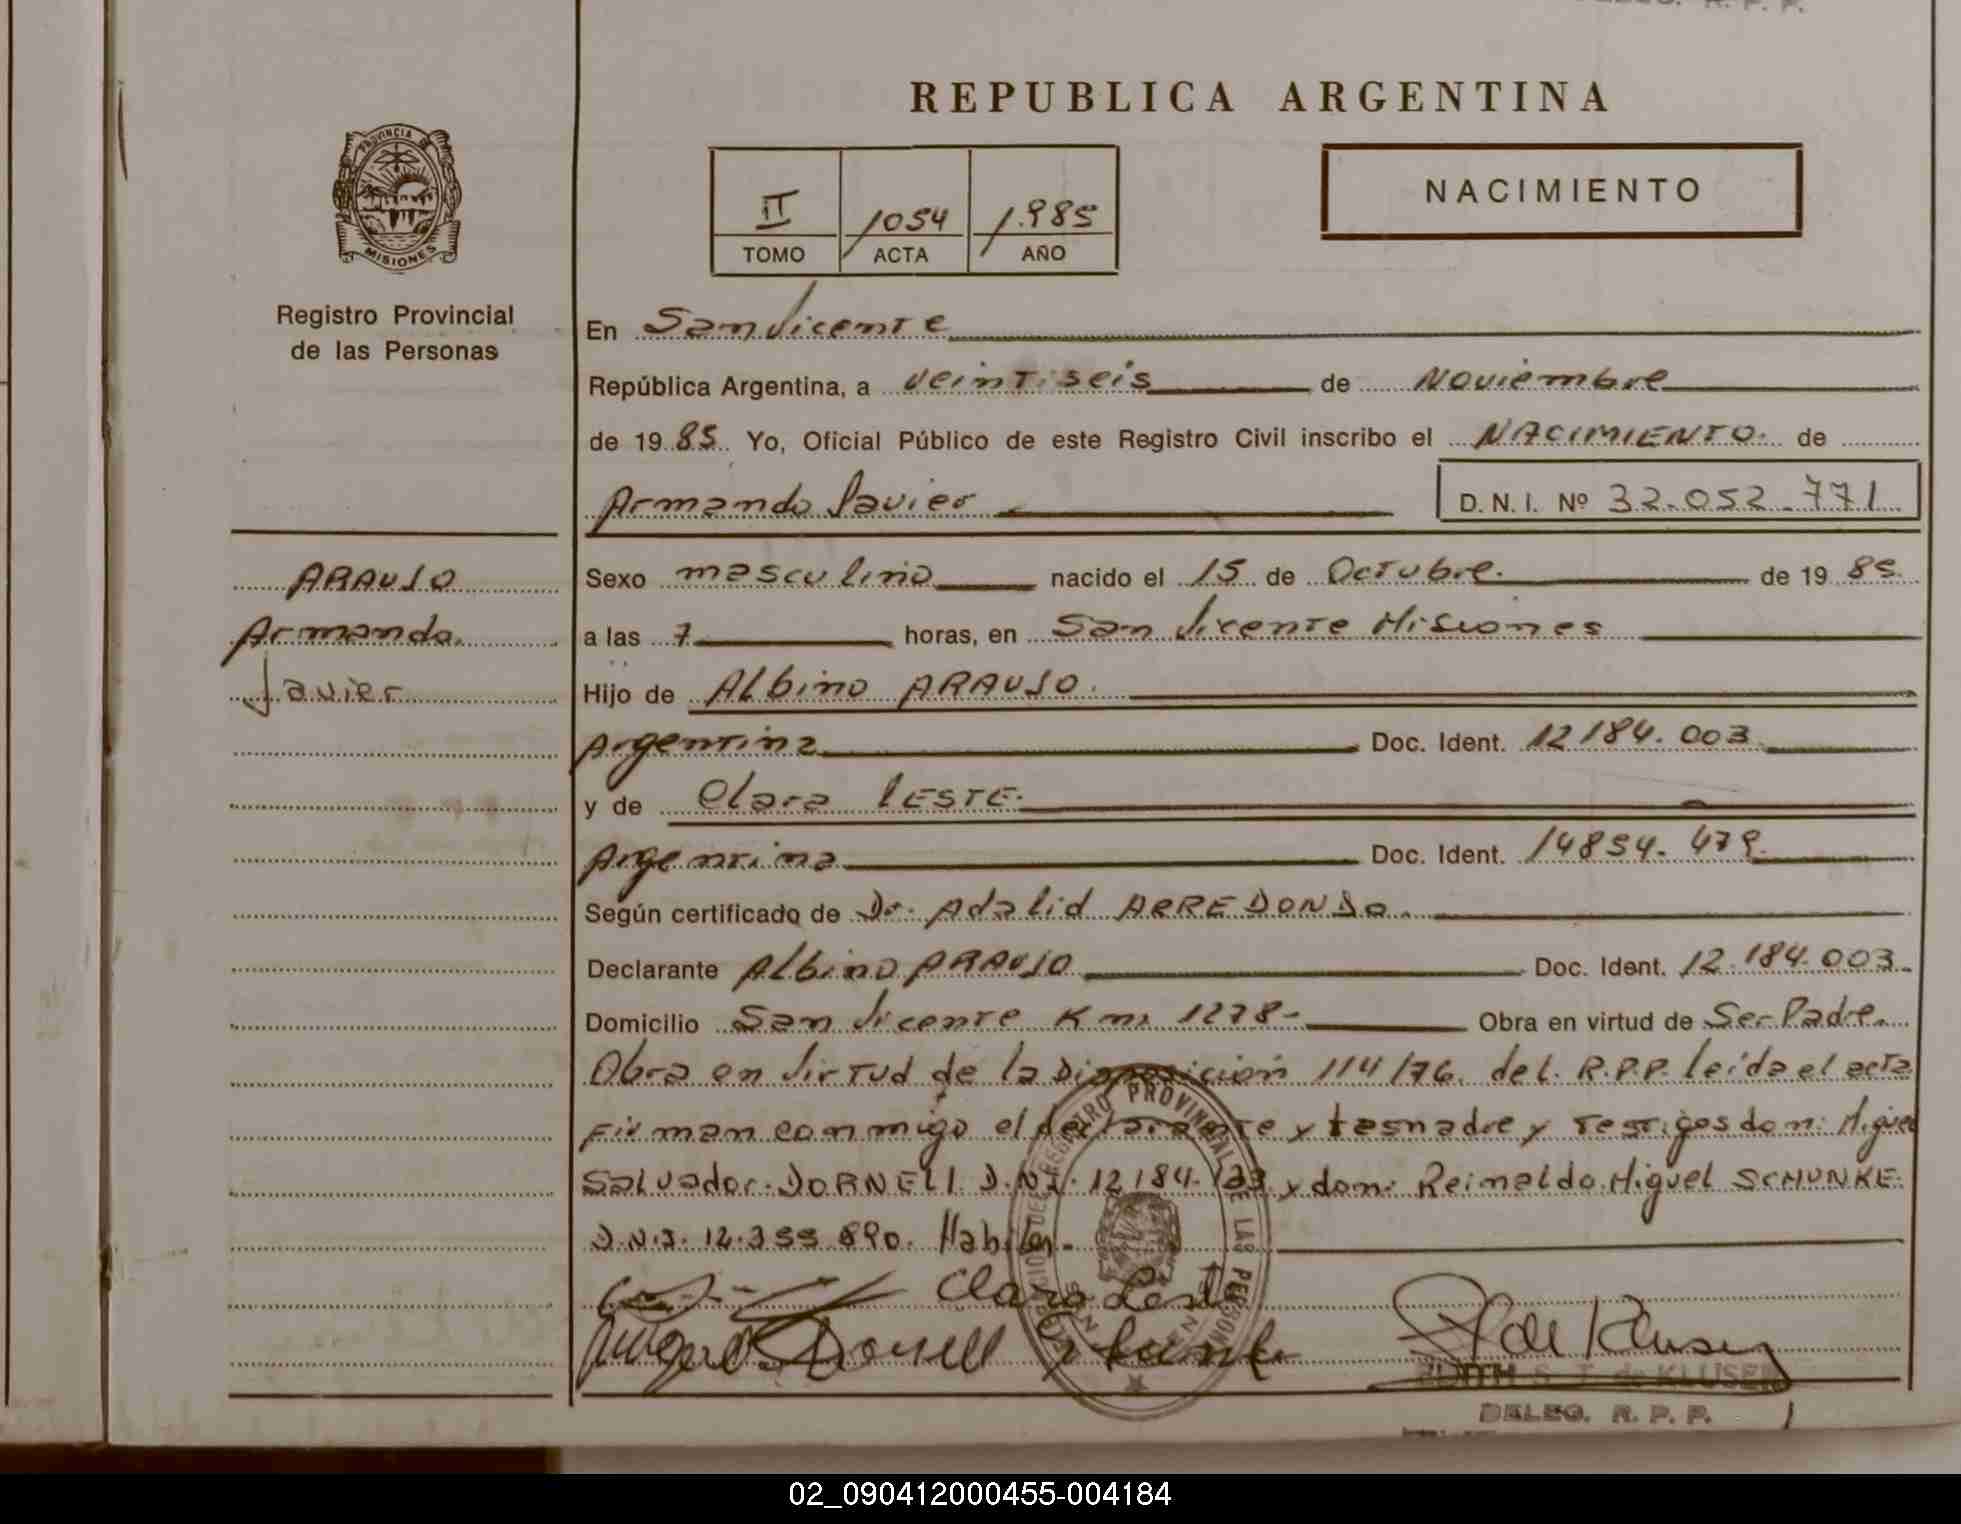 DELEG. R. P. P.
REPUBLICA ARGENTINA
PROVINCIA DE
MISIONES
II 1054 1.985
TOMO ACTA AÑO
NACIMIENTO
Registro Provincial
de las Personas
En San Vicente
República Argentina, a veintiseis de Noviembre
de 19 85 Yo, Oficial Público de este Registro Civil inscribo el NACIMIENTO. de
Armando Javier D. N. I. Nº 32.052.771
ARAUJO
Armando
Javier
Sexo masculino nacido el 15 de Octubre. de 19 85.
a las 7 horas, en San Vicente Misiones
Hijo de Albino ARAUJO.
Argentina Doc. Ident. 12184.003
y de Clara LESTE.
Argentina Doc. Ident. 14854.479.
Según certificado de Dr. Adalid ARREDONDO.
Declarante Albino ARAUJO Doc. Ident. 12.184.003.
Domicilio San Vicente Km. 1278- Obra en virtud de Ser Padre.
Obra en Virtud de la Disposición 114/76. del. R.P.P. leída el acta
Firman conmigo el declarante y madre y testigos don: Miguel
Salvador. DORNELL D.N.I. 12184. y don: Reinaldo Miguel SCHUNKE.
D.N.I. 12.355 890. Habiles.
Clara Leste
de Klusen
REGISTRO PROVINCIAL DE LAS PERSONAS
EDITH S. T. de KLUSEN
DELEG. R. P. P.
02_090412000455-004184